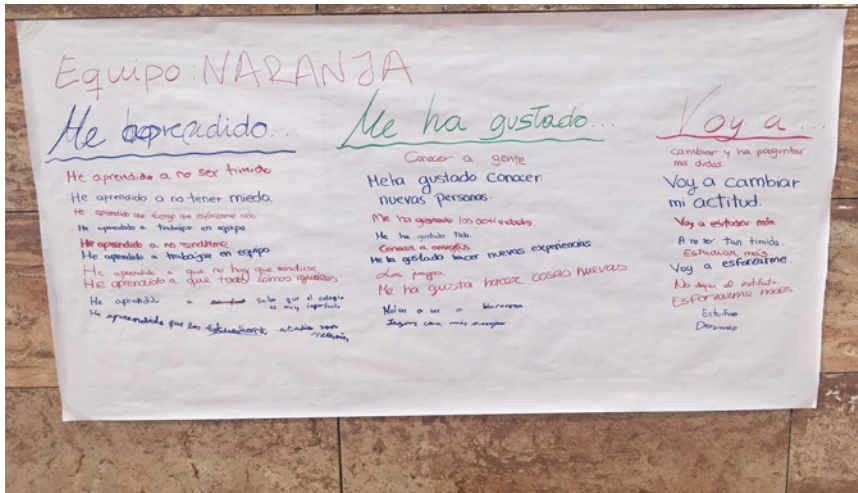 Equipo: NARANJA
He aprendido...
He aprendido a no ser timida
He aprendido a no tener miedo.
He aprendido que tengo que esforzarme más
He aprendido a trabajar en equipo
He aprendido a no rendirme
He aprendido a trabajar en equipo
He aprendido a que no hay que rendirse
He aprendido a que todos somos iguales
He aprendido a sabe que el colegio
es muy importante
He aprendido que los
Me ha gustado...
Conocer a gente
Me ha gustado conocer
nuevas personas.
Me ha gustado las actividades.
Me ha gustado todo.
Conocer a amig@s
Me ha gustado hacer nuevas experiencias
Los juegos.
Me ha gusta hacer cosas nuevas
Volver a ver a
Jugar con mis amigos
Voy a...
cambiar y ha preguntar
mis dudas.
Voy a cambiar
mi actitud.
Voy a estudiar más
A no ser tan timida.
Estudiar más
Voy a esforzarme.
No dejar el instituto
Esforzarme más
Estudiar